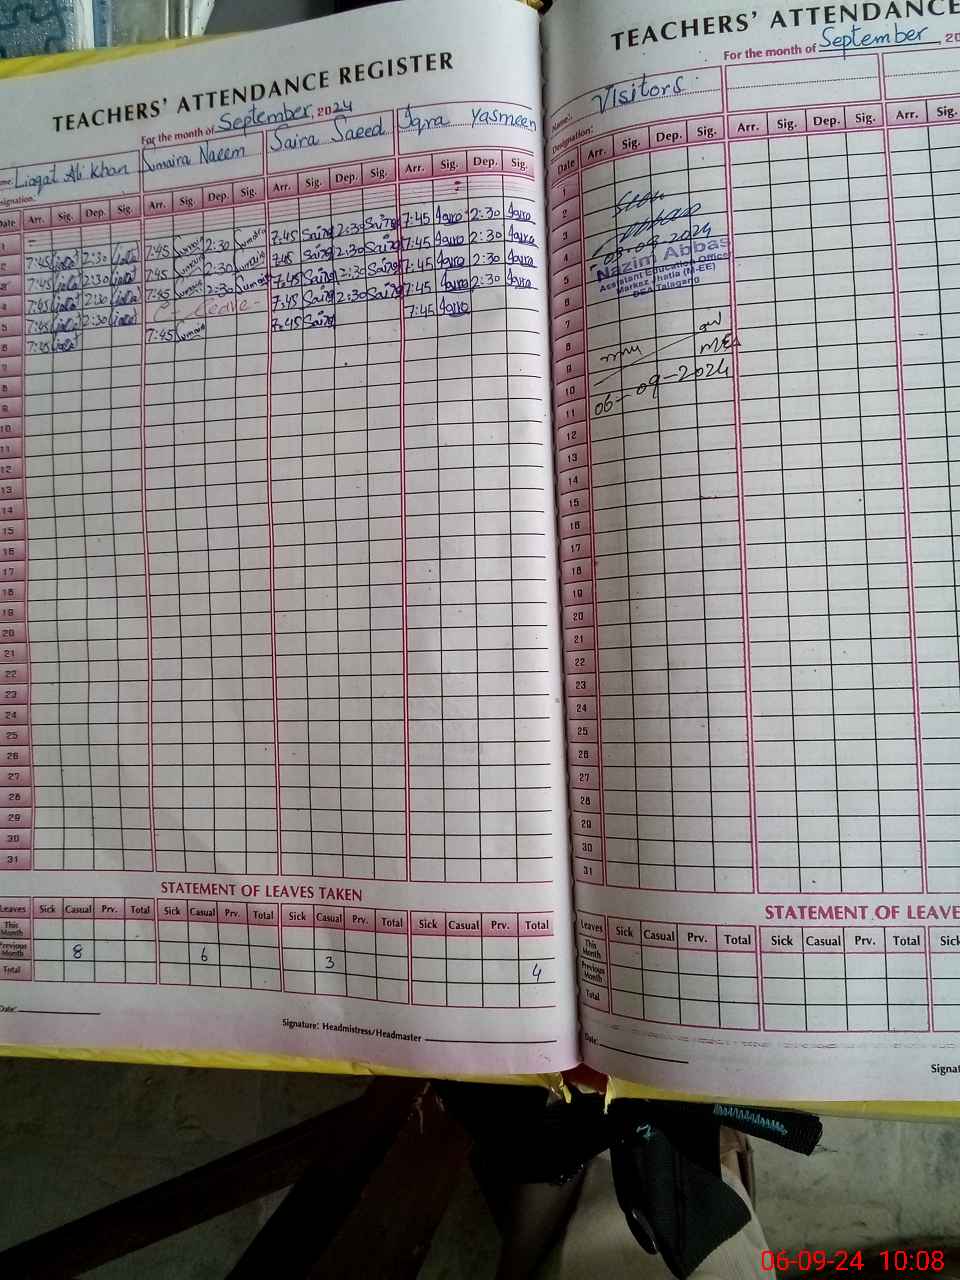 TEACHERS' ATTENDANCE REGISTER
For the month of September, 2024
Name: Liaqat Ali Khan Sumaira Naeem Saira Saeed Iqra Yasmeen
Designation:
Date Arr. Sig. Dep. Sig. Arr. Sig. Dep. Sig. Arr. Sig. Dep. Sig. Arr. Sig. Dep. Sig.
1
2 7:45 2:30 7:45 2:30 7:45 2:30 7:45 2:30
3 7:45 2:30 7:45 2:30 7:45 2:30 7:45 2:30
4 7:45 2:30 7:45 2:30 7:45 2:30 7:45 2:30
5 7:45 2:30 C - Leave - 7:45 2:30 7:45 2:30
6 7:45 7:45 7:45 7:45
7
8
9
10
11
12
13
14
15
16
17
18
19
20
21
22
23
24
25
26
27
28
29
30
31
STATEMENT OF LEAVES TAKEN
Leaves Sick Casual Prv. Total Sick Casual Prv. Total Sick Casual Prv. Total Sick Casual Prv. Total
This Month
Previous Month 8 6 3 4
Total
Date:
Signature: Headmistress/Headmaster
TEACHERS' ATTENDANCE
For the month of September, 20
Name: Visitors
Designation:
Date Arr. Sig. Dep. Sig. Arr. Sig. Dep. Sig. Arr. Sig.
1
2
3
4
5
6
7
8
9
10
11
12
13
14
15
16
17
18
19
20
21
22
23
24
25
26
27
28
29
30
31
03-09-2024
Nazim Abbas
Assistant Education Officer
Markaz Jhatla (M-EE)
DEA Talagang
MEA
06-09-2024
STATEMENT OF LEAVE
Leaves Sick Casual Prv. Total Sick Casual Prv. Total Sick
This Month
Previous Month
Total
Date:
Signat
06-09-24 10:08